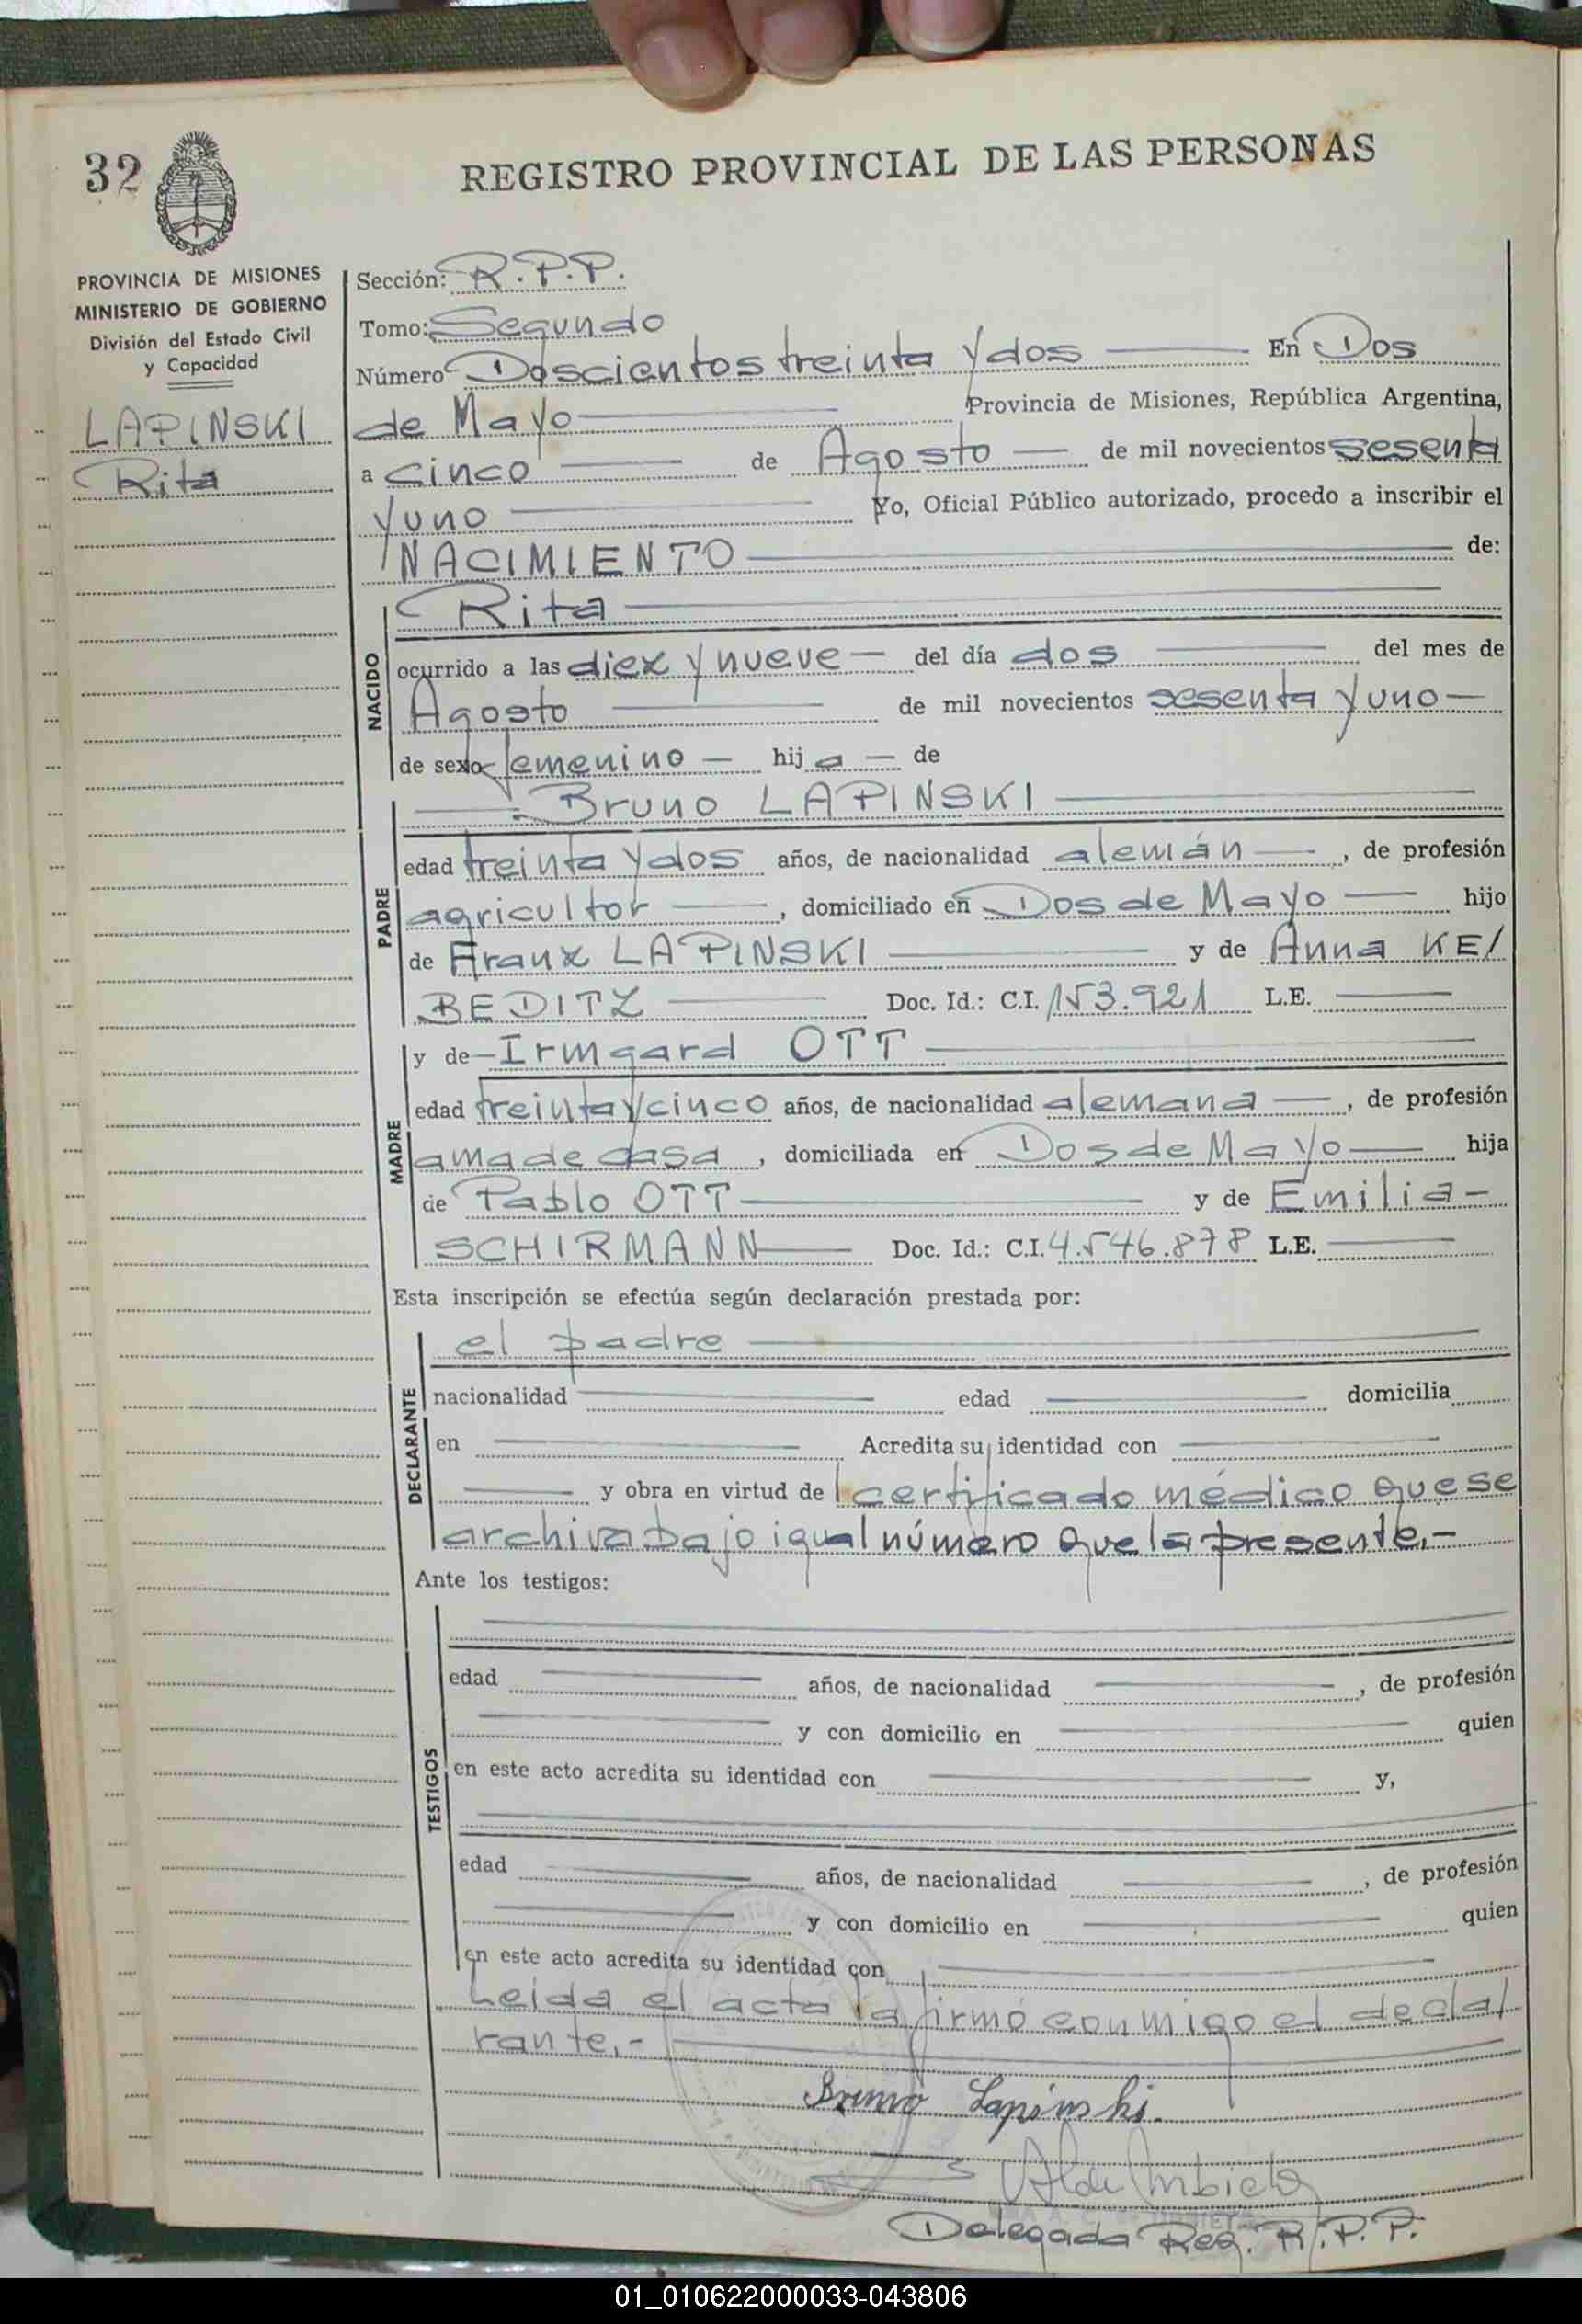 32
REGISTRO PROVINCIAL DE LAS PERSONAS
PROVINCIA DE MISIONES
MINISTERIO DE GOBIERNO
División del Estado Civil
y Capacidad
LAPINSKI
Rita
Sección: R.P.P.
Tomo: Segundo
Número Doscientos treinta y dos En Dos
de Mayo Provincia de Misiones, República Argentina,
a cinco de Agosto de mil novecientos sesenta
y uno Yo, Oficial Público autorizado, procedo a inscribir el
NACIMIENTO de:
NACIDO
Rita
ocurrido a las diez y nueve del día dos del mes de
Agosto de mil novecientos sesenta y uno
de sexo femenino hija de
PADRE
Bruno LAPINSKI
edad treinta y dos años, de nacionalidad alemán, de profesión
agricultor, domiciliado en Dos de Mayo hijo
de Franz LAPINSKI y de Anna KEI
BEDITZ Doc. Id.: C.I. 153.921 L.E.
MADRE
y de Irmgard OTT
edad treinta y cinco años, de nacionalidad alemana, de profesión
ama de casa, domiciliada en Dos de Mayo hija
de Pablo OTT y de Emilia
SCHIRMANN Doc. Id.: C.I. 4.546.878 L.E.
Esta inscripción se efectúa según declaración prestada por:
DECLARANTE
el padre
nacionalidad edad domicilia
en Acredita su identidad con
y obra en virtud del certificado médico que se
archiva bajo igual número que la presente.-
Ante los testigos:
TESTIGOS
edad años, de nacionalidad , de profesión
y con domicilio en quien
en este acto acredita su identidad con y,
edad años, de nacionalidad , de profesión
y con domicilio en quien
en este acto acredita su identidad con
Leída el acta la firmó conmigo el decla/
rante.-
Bruno Lapinski.
Delegada Reg. R.P.P.
01_010622000033-043806